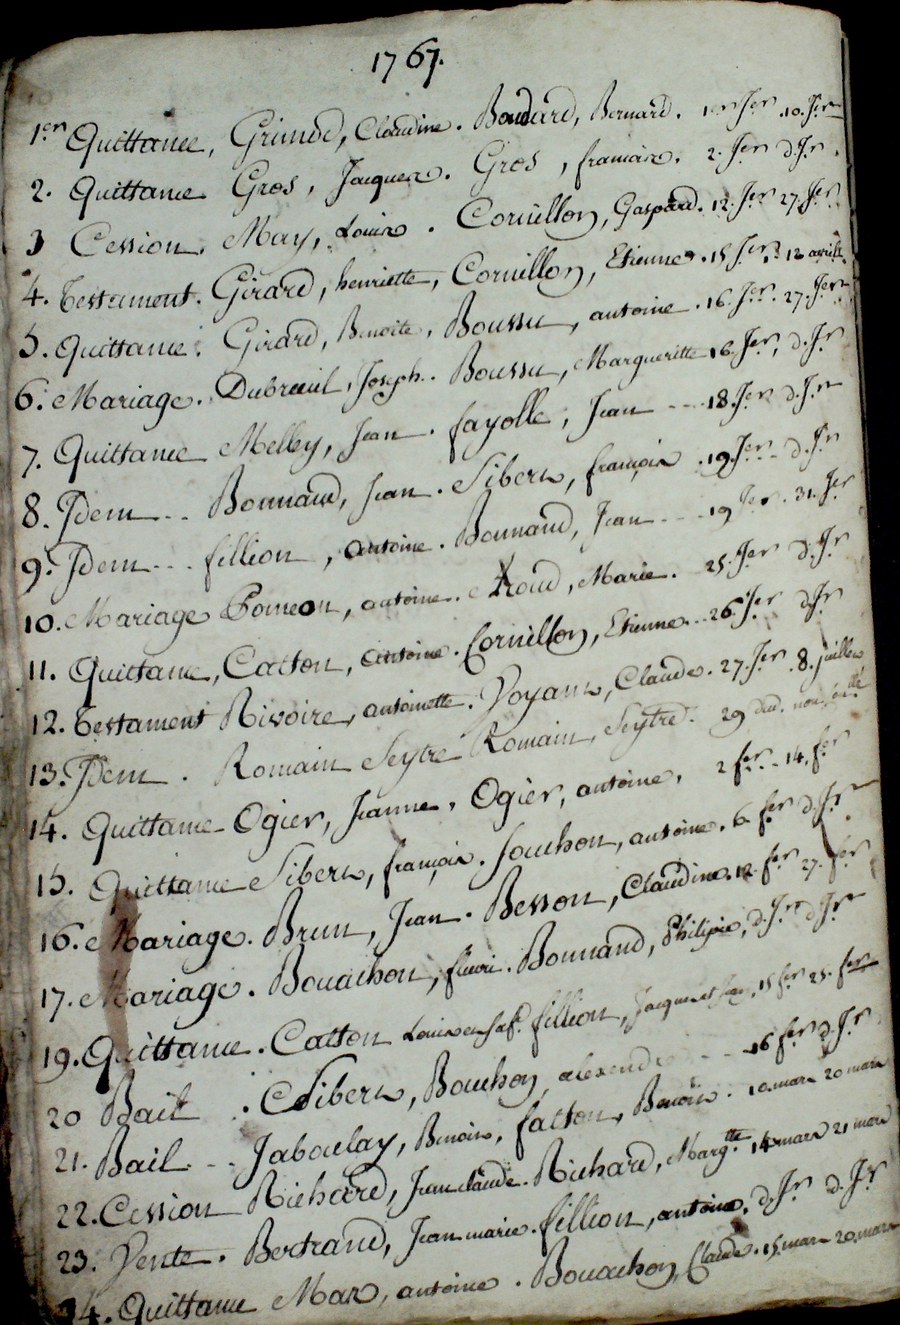 1767.
1er Quittance, Grimod, Claudine. Boudard, Bernard. 1er Jer .10. Jer
2. Quittance Gros, Jacques. Gros, francois. 2. Jer d. Jr.
3 Cession. May, Louis. Cornillon, Gaspard. 12. Jer 27. Jer
4. Testament. Girard, henriette, Cornillon, Etienne. 15 Jer. 12 avril
5. Quittance. Girard, Benoite, Boussu, antoine. 16. Jer. 27. Jer
6. Mariage. Dubreuil, Joseph. Boussu, Margueritte 16. Jer, d. Jr
7. Quittance Melley, Jean. fayolle, Jean --- 18. Jer d. Jr
8. Jdem -- Bonnand, Jean. Sibert, françois .19. Jer - d. Jr
9. Jdem --- fillion, antoine. Bonnand, Jean --- 19 Jer. 31. Jer
10. Mariage Pomeon, antoine. Aroud, Marie. 25. Jer d. Jr
11. Quittance, Catton, antoine. Cornillon, Etienne -- 26 Jer d. Jr
12. Testament Rivoire, antoinette. Voyant, Claude. 27. Jer. 8. juillet
13. Jdem. Romain Seytre Romain, Seytre. 29
14. Quittance Ogier, Jeanne, Ogier, antoine, 2 fer -- 14. fer
15. Quittance Sibert, françois. Souchon, antoine. 6 fer d. Jr
16. Mariage. Brun, Jean. Besson, Claudine. 12. fer 27. fer
17. Mariage. Bouachon, fleuri. Bonnand, Philippe, d. Jr d. Jr
19. Quittance. Catton Louis fillion, Jacques 15 fer 25. fer
20 Bail. Sibert, Bouchon, --- 16 fer d. Jr
21. Bail -- Jaboulay, Benoit, fatton, Benoit. 10. mars 20 mars
22. Cession Richard, Jean claude. Richard, Margtte 14 mars 21 mars
23. Vente. Bertrand, Jean marie. fillion, antoine, d. Jr d. Jr
24. Quittance Mar, antoine. Bouachon, Claude. 15. mars 20. mars